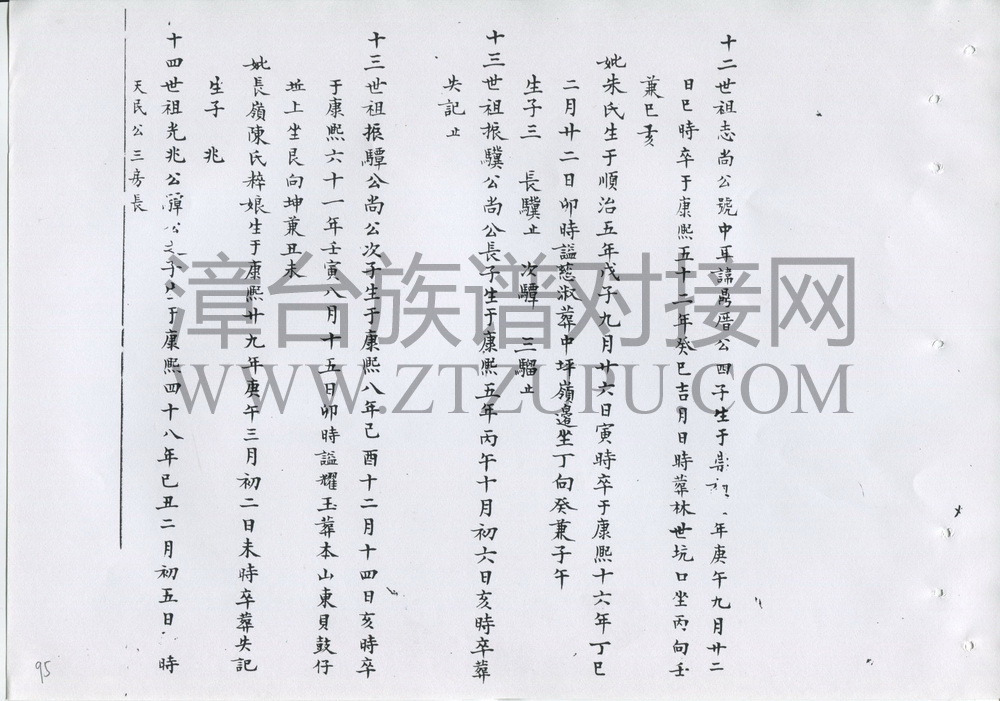 十二世祖志尚公號中耳諱鼎厝公四子生于崇禎 年庚午九月廿二
日巳時卒于康熙五十二年癸巳吉月日時葬林世坑口坐丙向壬
兼巳亥
妣朱氏生于順治五年戊子九月廿六日寅時卒于康熙十六年丁巳
二月廿二日卯時謚慈淑葬中坪嶺邊坐丁向癸兼子午
生子三 長驥止 次驔 三騮止
十三世祖振驥公尚公長子生于康熙五年丙午十月初六日亥時卒葬
失記止
十三世祖振驔公尚公次子生于康熙八年己酉十二月十四日亥時卒
于康熙六十一年壬寅八月十五日卯時謚耀玉葬本山東貝鼓仔
上坐艮向坤兼丑未
妣長嶺陳氏粹娘生于康熙廿九年庚午三月初二日未時卒葬失記
生子 兆
十四世祖光兆公驔公之子生于康熙四十八年己丑二月初五日 時
天民公三房長
95
漳台族谱对接网
WWW.ZTZUPU.COM